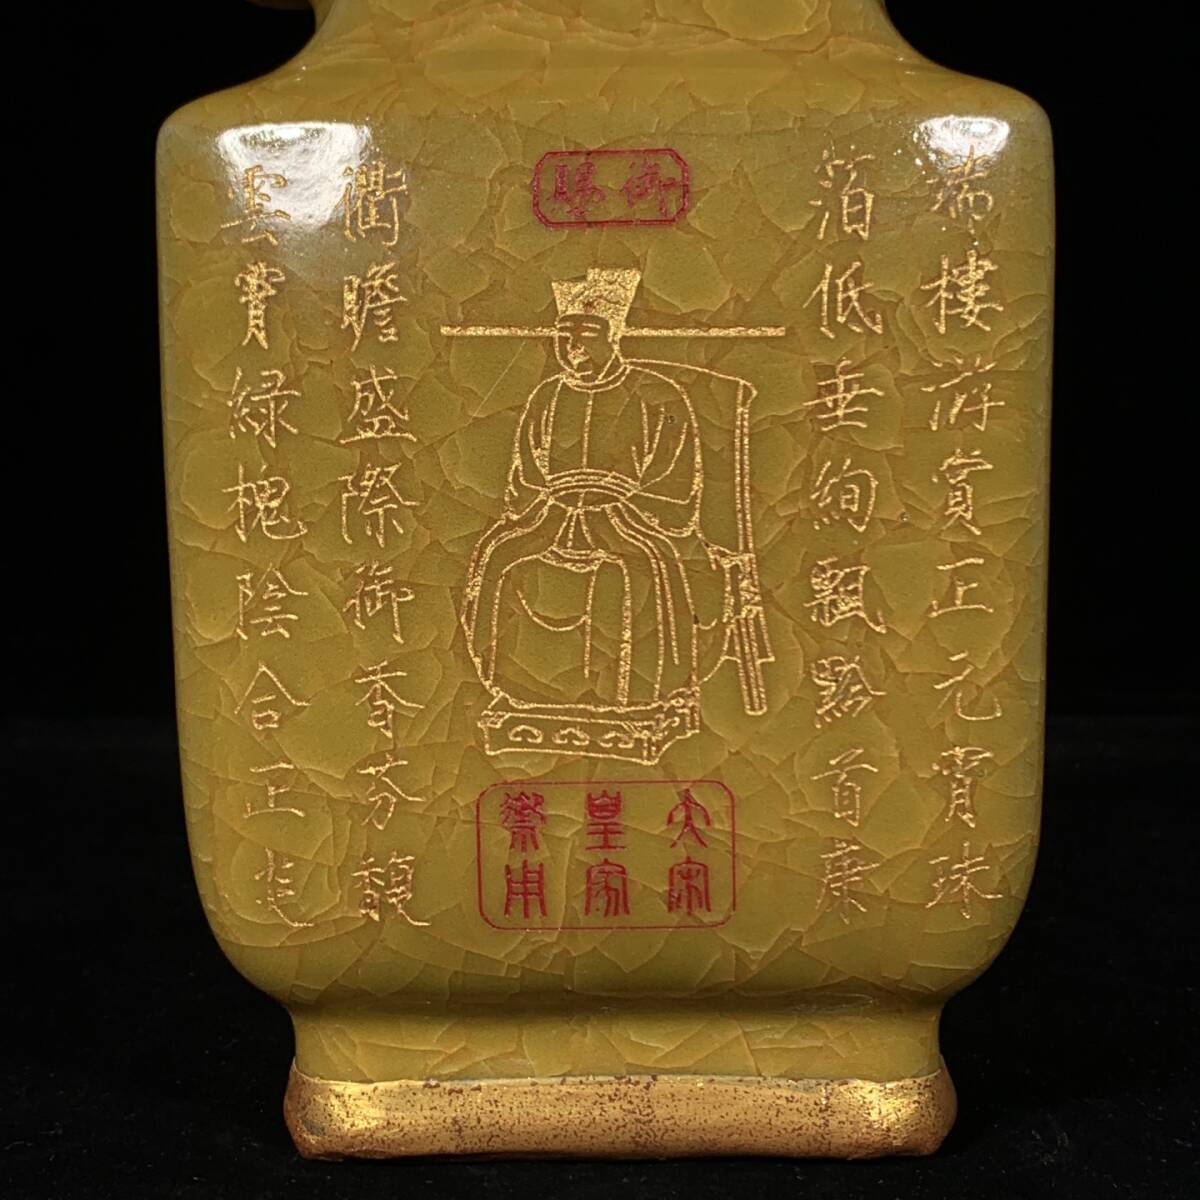 瑞樓游賞正元宵珠
箔低垂絢飄黔首康
御賜
大宋
皇家
用
衢瞻盛際御香芬馥
雲霄綠槐陰合正